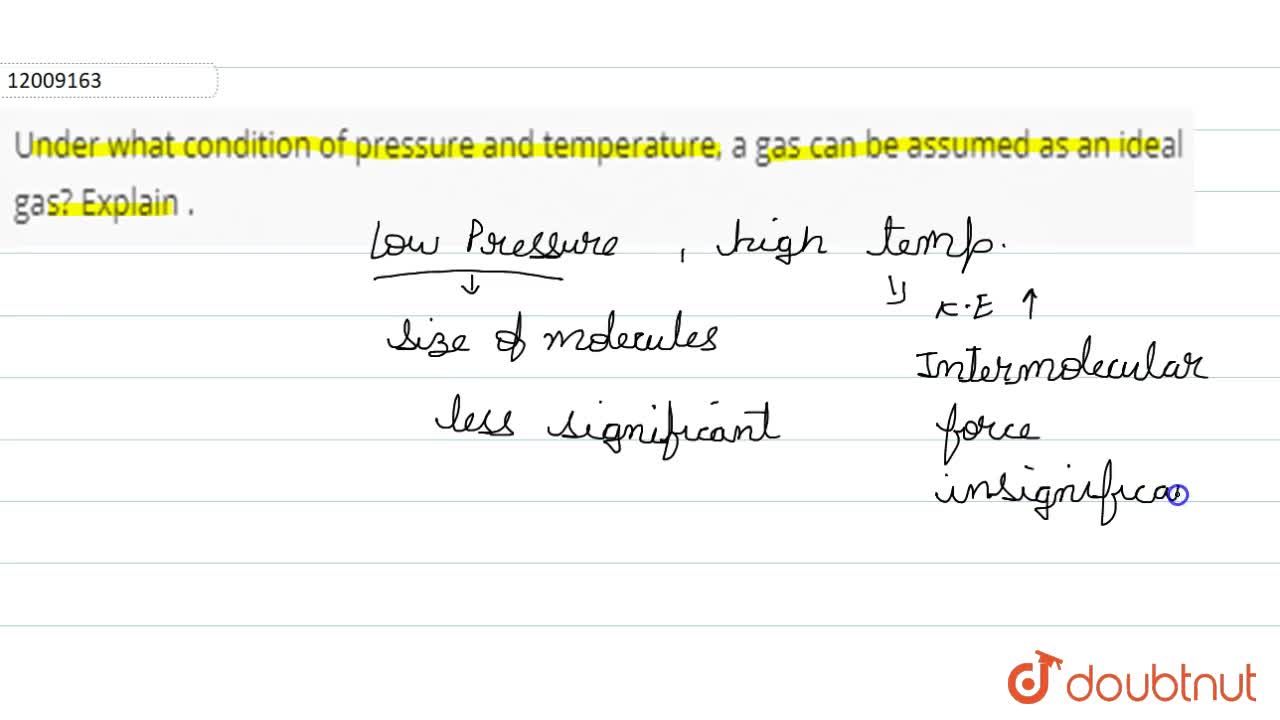 12009163
Under what condition of pressure and temperature, a gas can be assumed as an ideal
gas? Explain .
Low Pressure , high temp.
K.E ↑
size of molecules
Intermolecular
less significant
force
insignifica
doubtnut